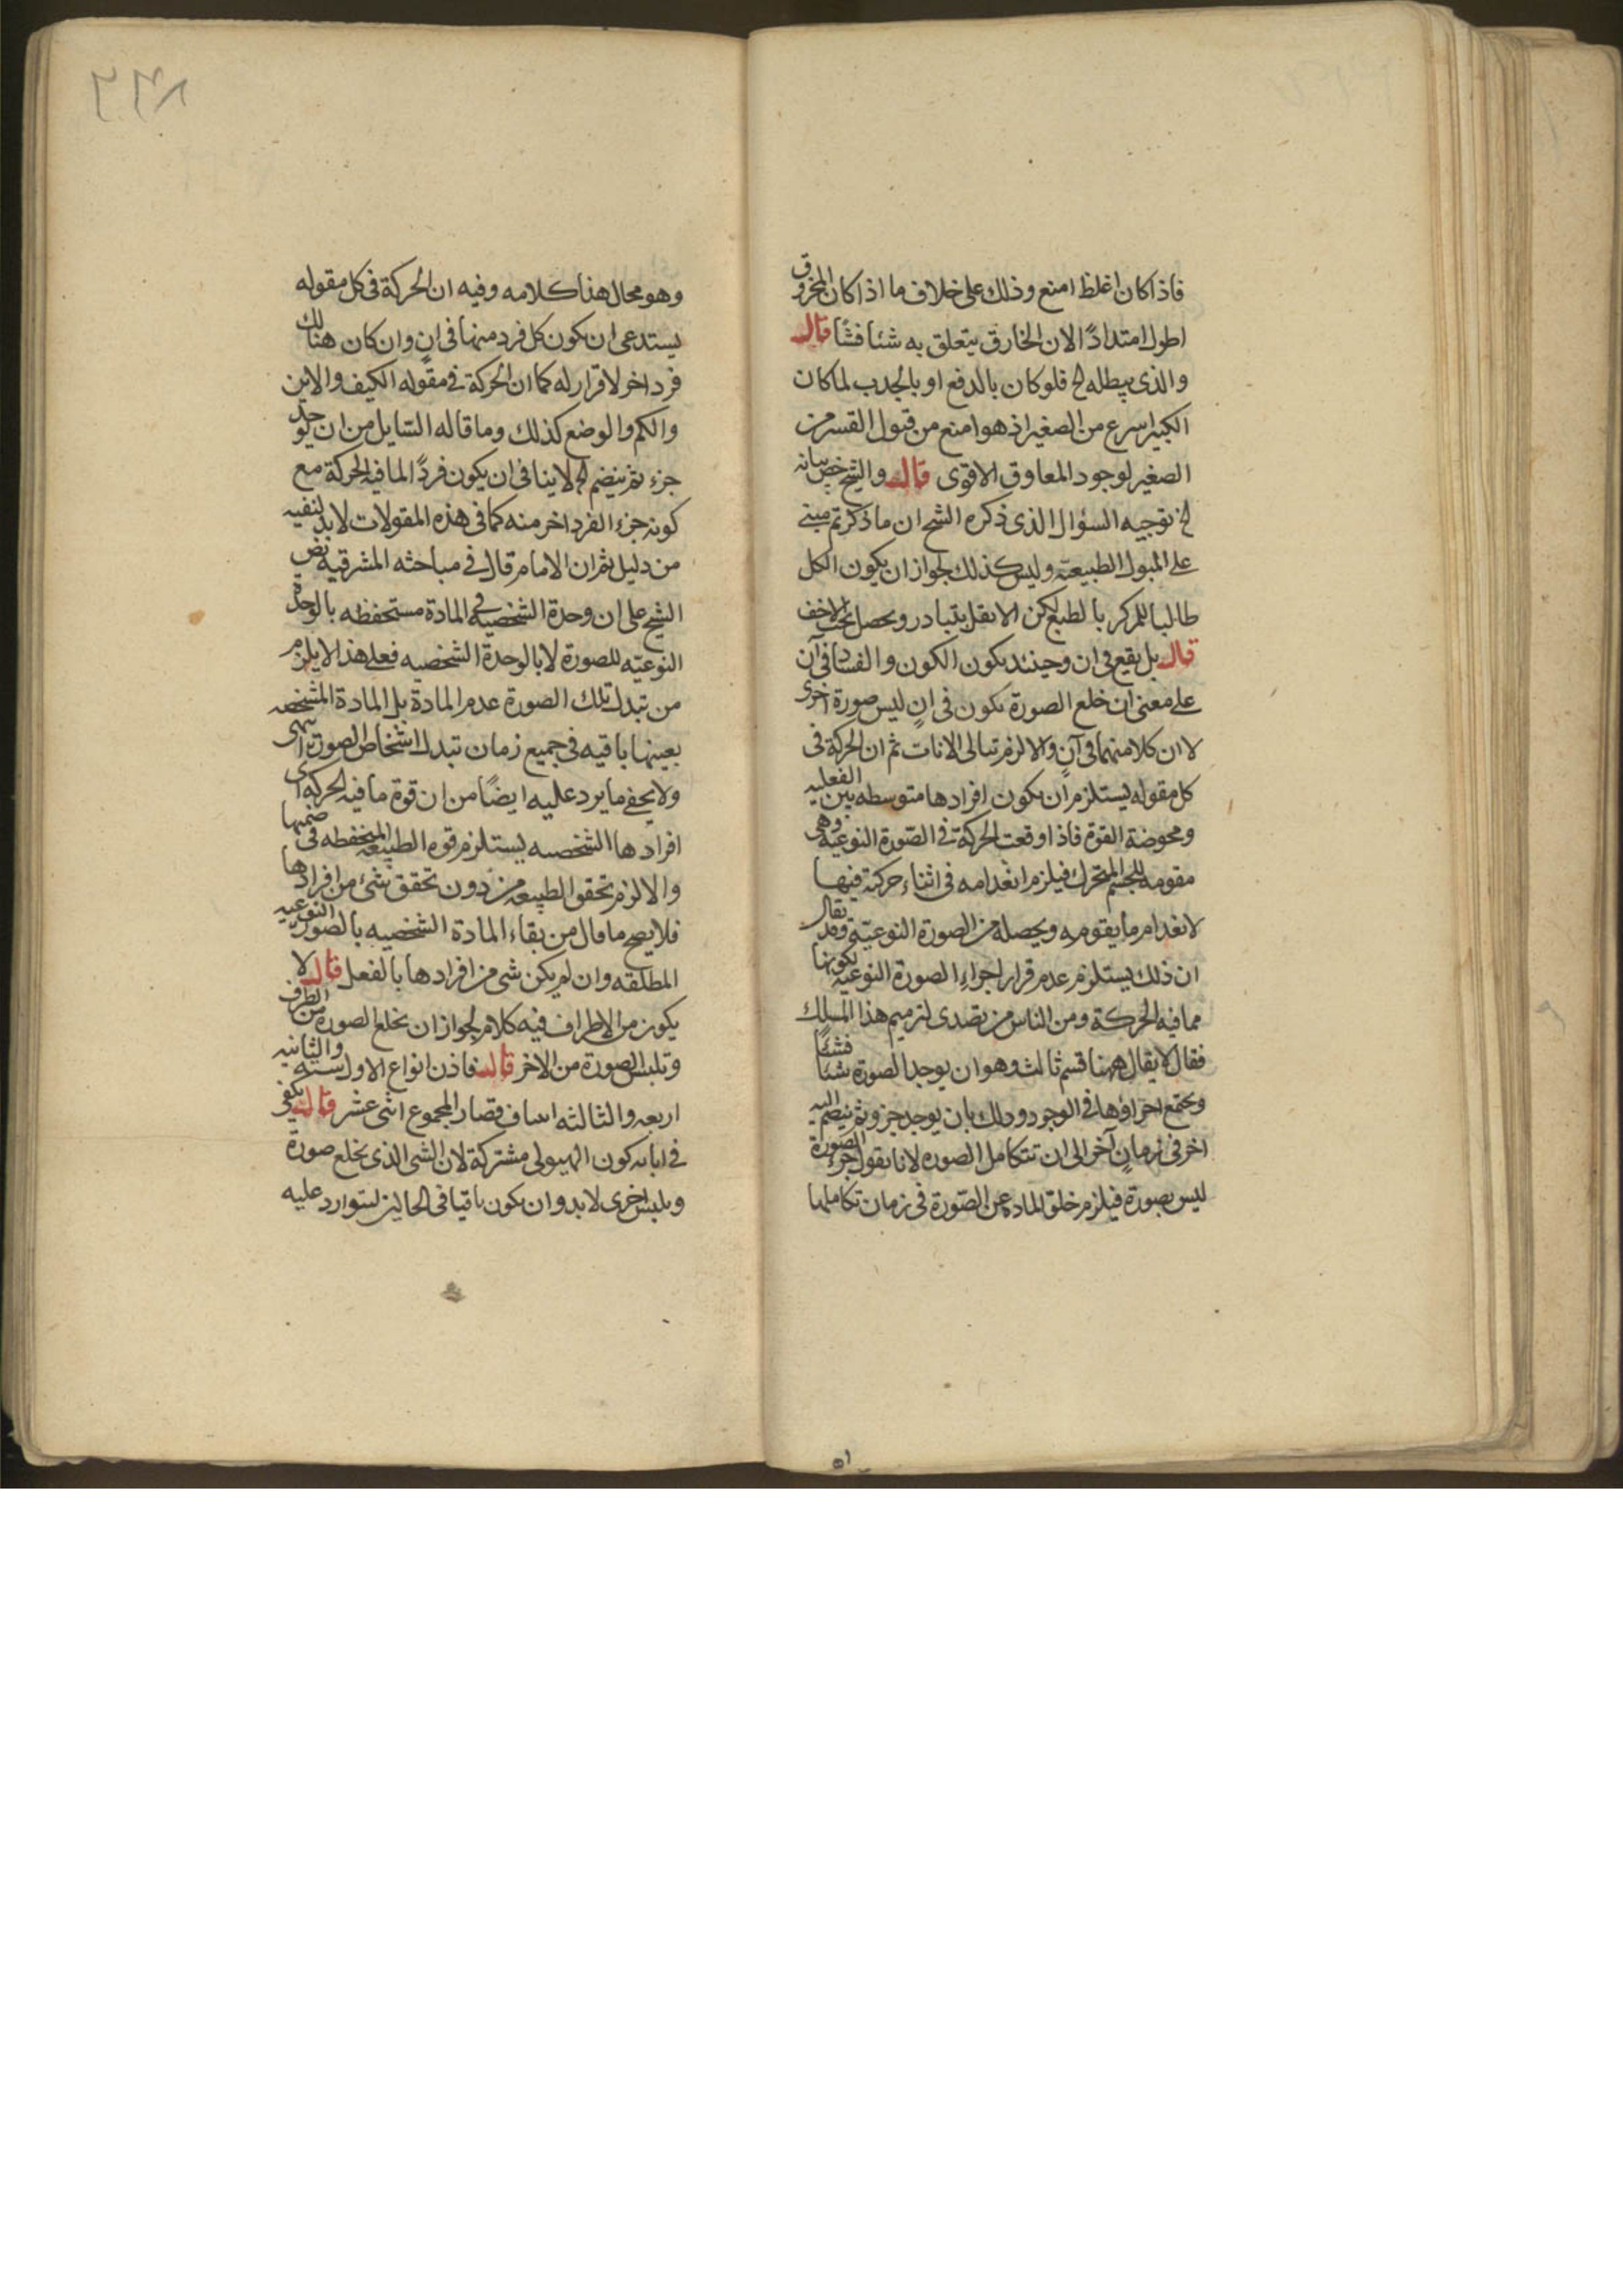 فاذا كان اغلظ امنع وذلك على خلاف ما اذا كان المخروق
اطول امتدادًا لان الخارق يتعلق به شئا فشًا قال
والذى يبطله لخ فلو كان بالدفع او بالجدب لما كان
الكبير اسرع من الصغير اذ هو امنع من قبول القسر من
الصغير لوجود المعاوق الاقوى قال والشيخ خص بيانه
لخ توجيه السؤال الذى ذكره الشح ان ما ذكرتم مبنے
على الميول الطبيعته وليس كذلك لجواز ان يكون الكل
طالبا للمركز بالطبع لكن الاثقل يتبادر ويحصل تحت الاخف
قال بل يقع فى ان وحينئد يكون الكون والفساد فى آن
على معنى ان خلع الصورة يكون فى انٍ ليس صورة اخرى
لا ان كلا منهما فى آنٍ والا لزم تتالى الانات ثم ان الحركة فى
كل مقوله يستلزم ان يكون افرادها متوسطه بين الفعليه
ومحوضة القوة فاذا وقعت الحركة فى الصّورة النوعيه وهى
مقومه للجسم المتحرك فيلزم انعدامه فى اثناء حركته فيها
لانعدام ما يقومه ويحصله من الصورة النوعيّة وقد يقال
ان ذلك يستلزم عدم قرار اجزاءِ الصورة النوعيه لكونها
مما فيه الحركة ومن الناس من تصدى لترميم هذا المسلك
فقال لا يقال ههنا قسم ثالث وهو ان يوجد الصورة شئا فشئًا
ويجتمع اجزاؤها فى الوجود وذلك بان يوجد جزو ثم ينضم اليه
اخر فى زمانٍ آخر الى ان تتكامل الصوره لانا نقول جزء الصورة
ليس بصورة فيلزم خلو الماده عن الصّورة فى زمان تكاملها
وهو محال هذا كلامه وفيه ان الحركة فى كل مقوله
يستدعى ان يكون كل فرد منها فى انٍ وان كان هنالك
فرد اخر لا قرار له كما ان الحركة فى مقوله الكيف والاين
والكم والوضع كذلك وما قاله السّايل من ان يوجد
جزء ثم ينضم لخ لا ينافى ان يكون فردًا لما فيه الحركة مع
كونه جزء الفرد اخر منه كما فى هذه المقولات لا بد لنفيه
من دليل ثم ان الامام قال فى مباحثه المشرقية نص
الشيخ على ان وحدة الشخصيه فى المادة مستحفظه بالوحدة
النوعيّه للصورة لا بالوحدة الشخصيه فعلى هذا لا يلزم
من تبدل تلك الصورة عدم المادة بل المادة المشخصه
بعينها باقيه فى جميع زمان تبدل اشخاص الصورة انتهى
ولا يخفى ما يرد عليه ايضًا من ان قوة ما فيه الحركه اى
افرادها الشخصيه يستلزم قوه الطبيعه المنحفظه فى ضمنها
والا لزم تحقق الطبيعه من دون تحقق شئ من افرادها
فلا يصح ما قال من بقاء المادة الشخصيه بالصور النوعيه
المطلقه وان لم يكن شى من افرادها بالفعل قال لا
يكون من الاطراف فيه كلام لجواز ان يخلع الصوره من الطرف
وتلبس الصورة من الاخر قال فاذن انواع الاول سته والثانيه
اربعه والثالثه اساف فصار المجموع اثنى عشر قال يكفى
فى ابانه كون الهيولى مشتركة لان الشى الذى يخلع صورة
ويلبس اخرى لا بد وان يكون باقيا فى الحالين لتوارد عليه